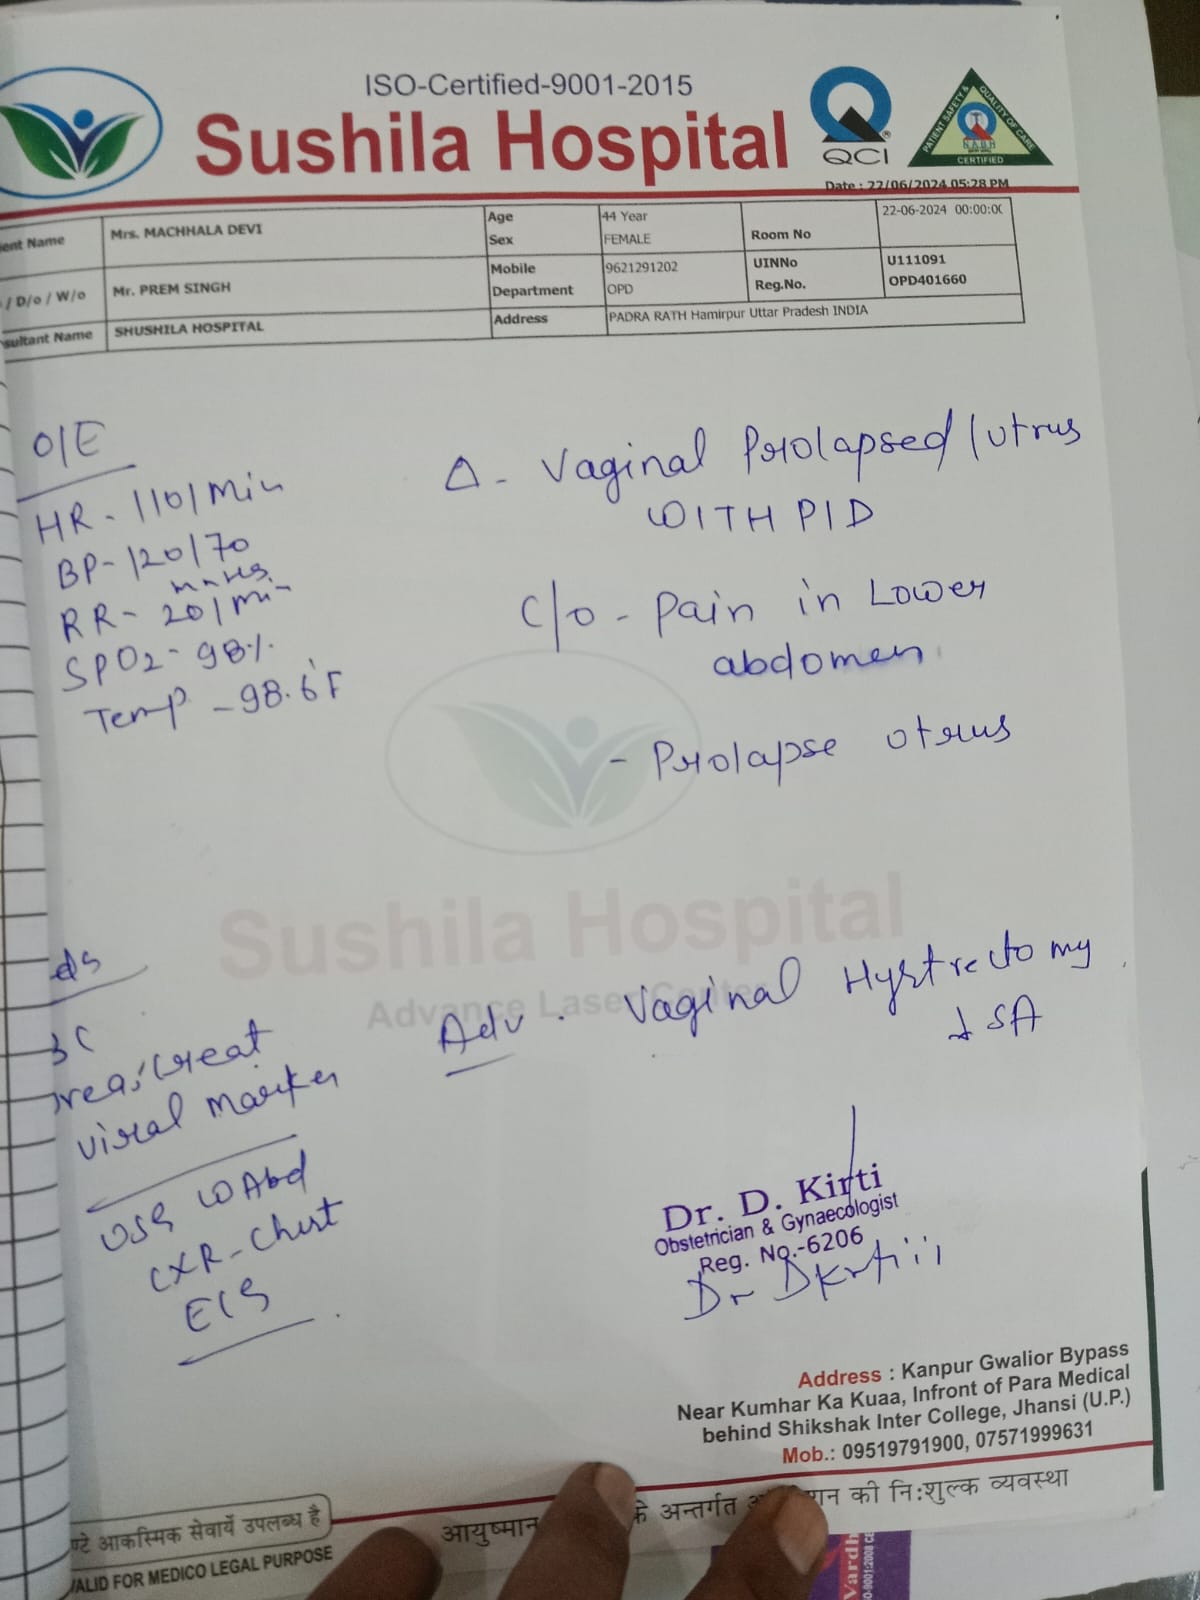 ISO-Certified-9001-2015
Sushila Hospital
QCI
PATIENT SAFETY & QUALITY OF CARE
NABH
CERTIFIED
Date : 22/06/2024 05:28 PM
ent Name Mrs. MACHHALA DEVI Age 44 Year 22-06-2024 00:00:0
Sex FEMALE Room No
/ D/o / W/o Mr. PREM SINGH Mobile 9621291202 UINNo U111091
Department OPD Reg.No. OPD401660
sultant Name SHUSHILA HOSPITAL Address PADRA RATH Hamirpur Uttar Pradesh INDIA
O/E
HR - 110/Min
BP - 120/70
mmHg
RR - 20/min
SPO2 - 98%
Temp - 98.6°F
Δ - Vaginal Prolapsed / Utrus
WITH PID
C/O - Pain in Lower
abdomen
- Prolapse utrus
Sushila Hospital
Advance Laser Center
Adv. Vaginal Hystrectomy
↓ SA
ds
BC
rea/Creat
viral marker
USG W Abd
CXR - Chest
ECG
Dr. D. Kirti
Obstetrician & Gynaecologist
Reg. No.-6206
Dr DKrtiii
Address : Kanpur Gwalior Bypass
Near Kumhar Ka Kuaa, Infront of Para Medical
behind Shikshak Inter College, Jhansi (U.P.)
Mob.: 09519791900, 07571999631
ण्टे आकस्मिक सेवायें उपलब्ध है
आयुष्मान के अन्तर्गत शन की नि:शुल्क व्यवस्था
ALID FOR MEDICO LEGAL PURPOSE
Vardh